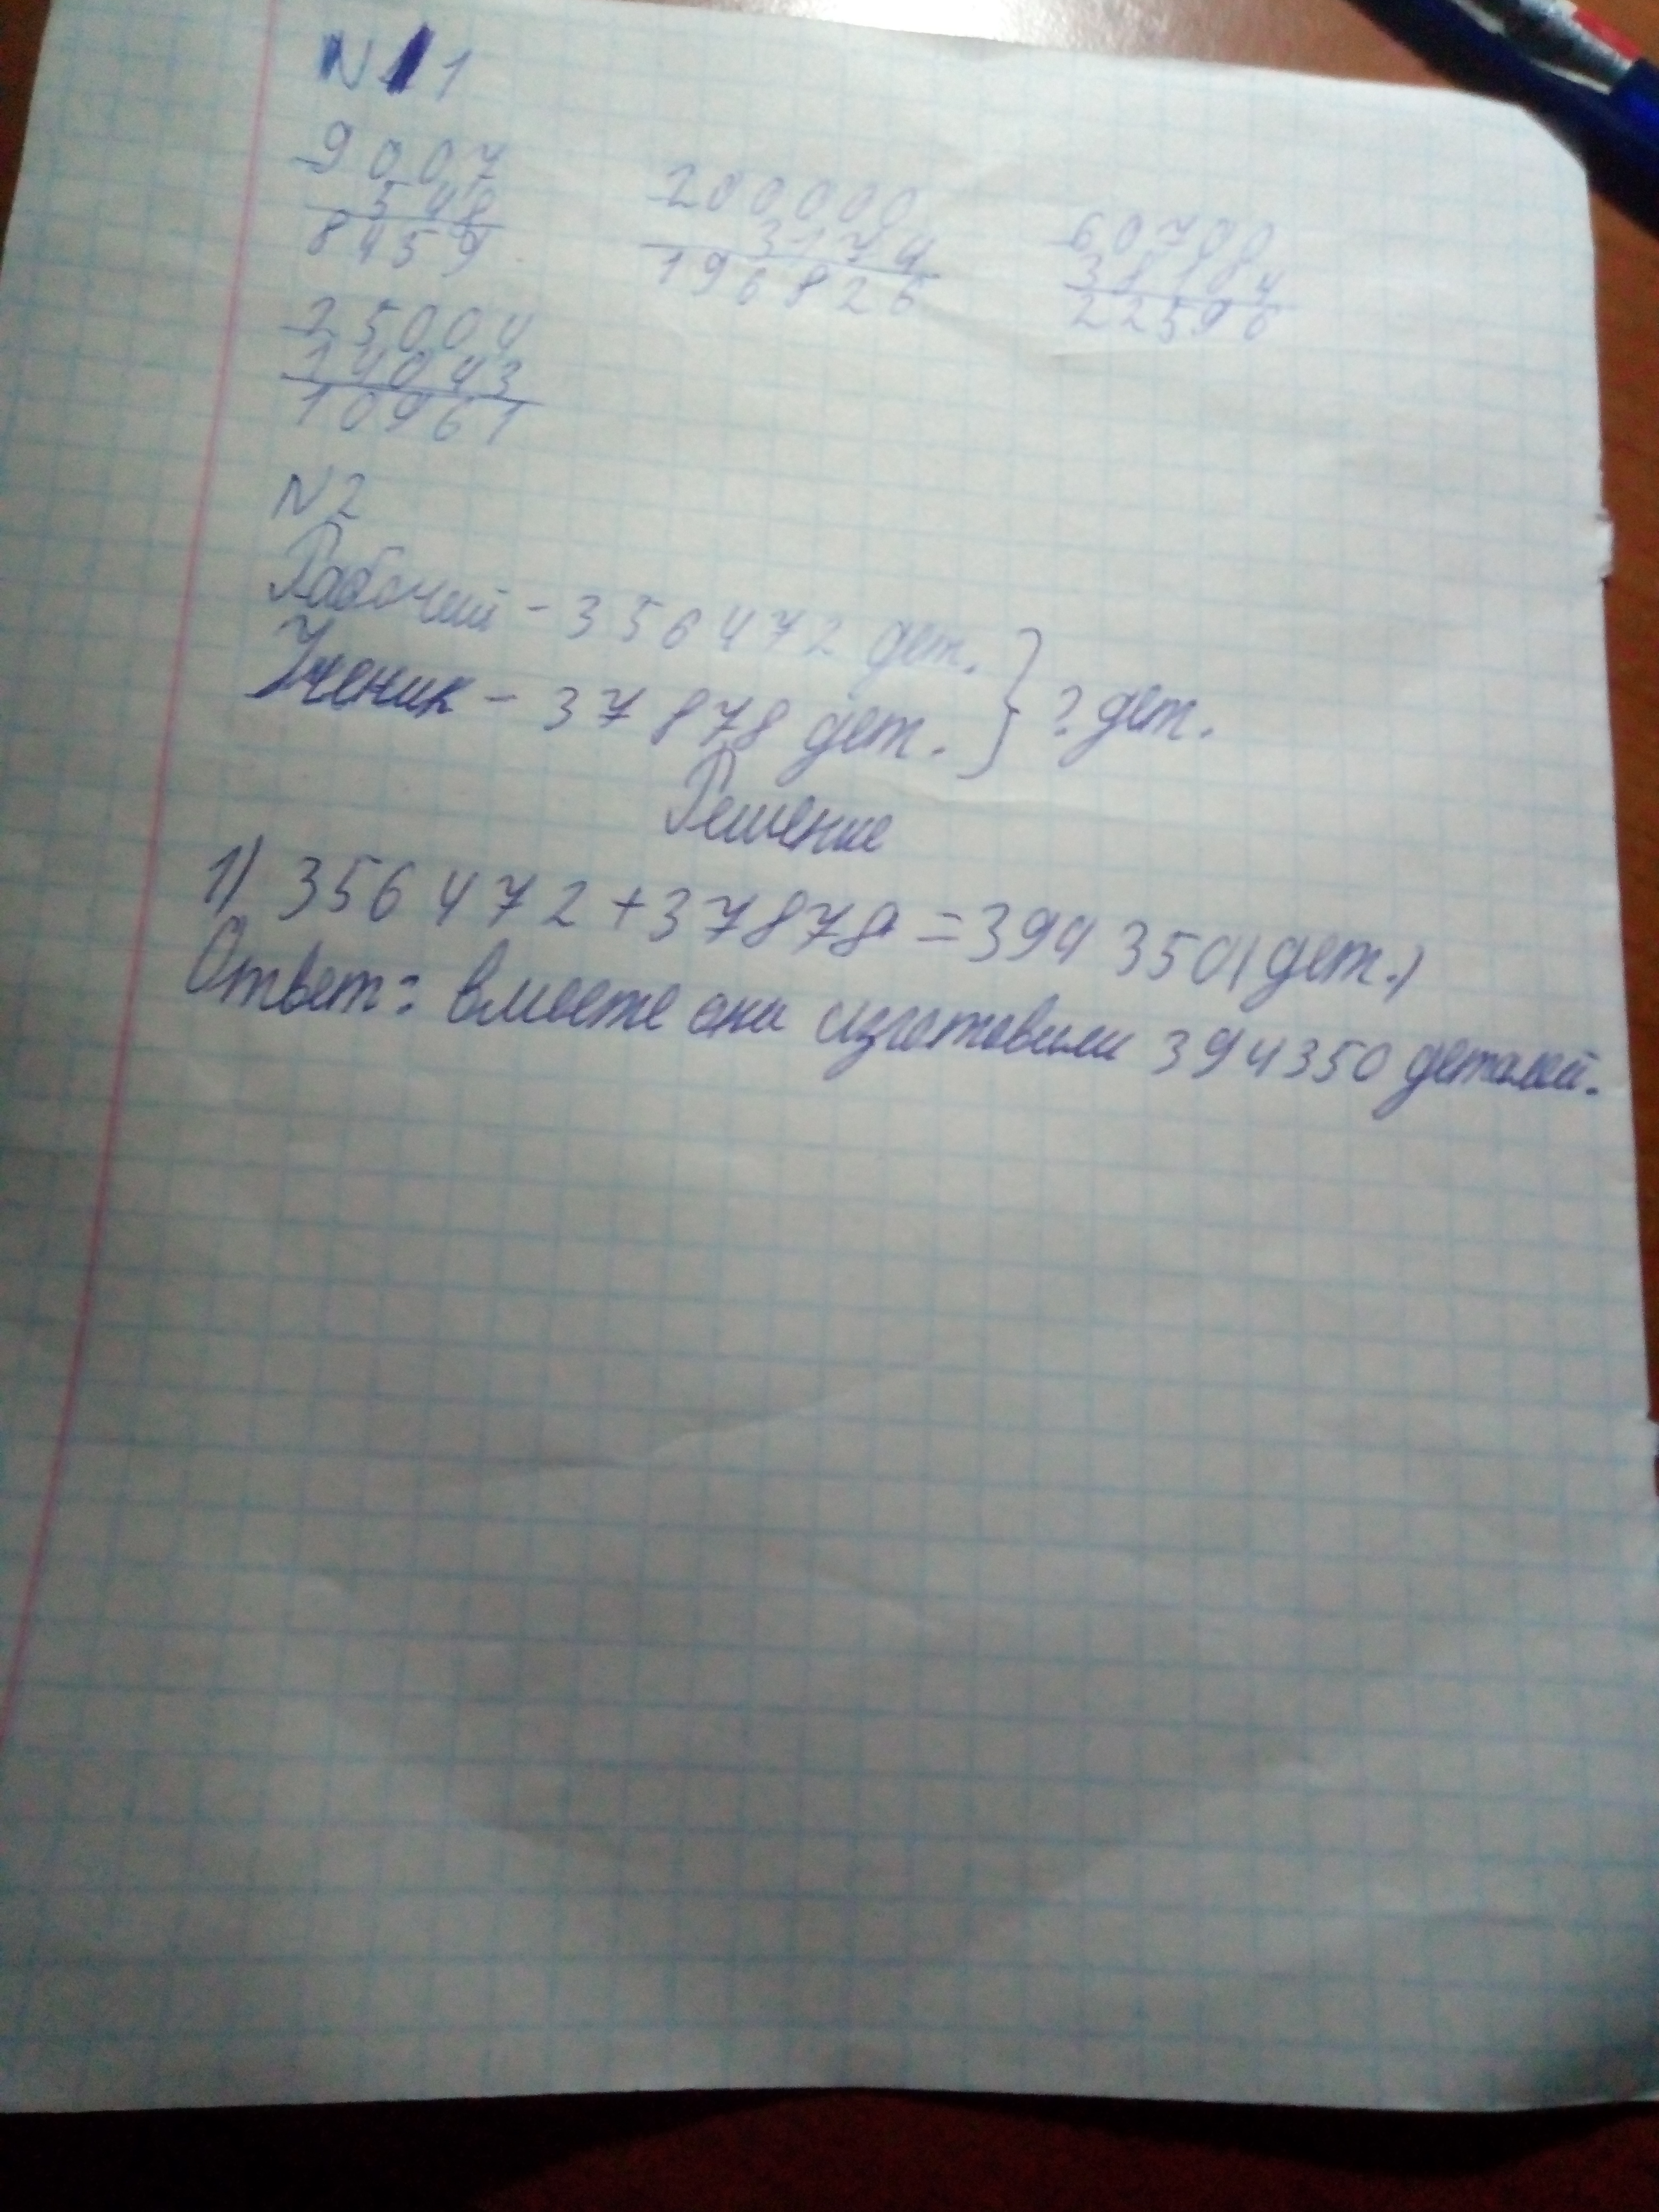 N 1
9007
548
8459
200000
3174
196826
60780
38184
22596
25004
14043
10961
N2
Рабочий - 356 472 дет.
Ученик - 37 878 дет. } ? дет.
Решение
1) 356 472 + 37878 = 394 350 (дет.)
Ответ: вместе они изготовили 394350 деталей.